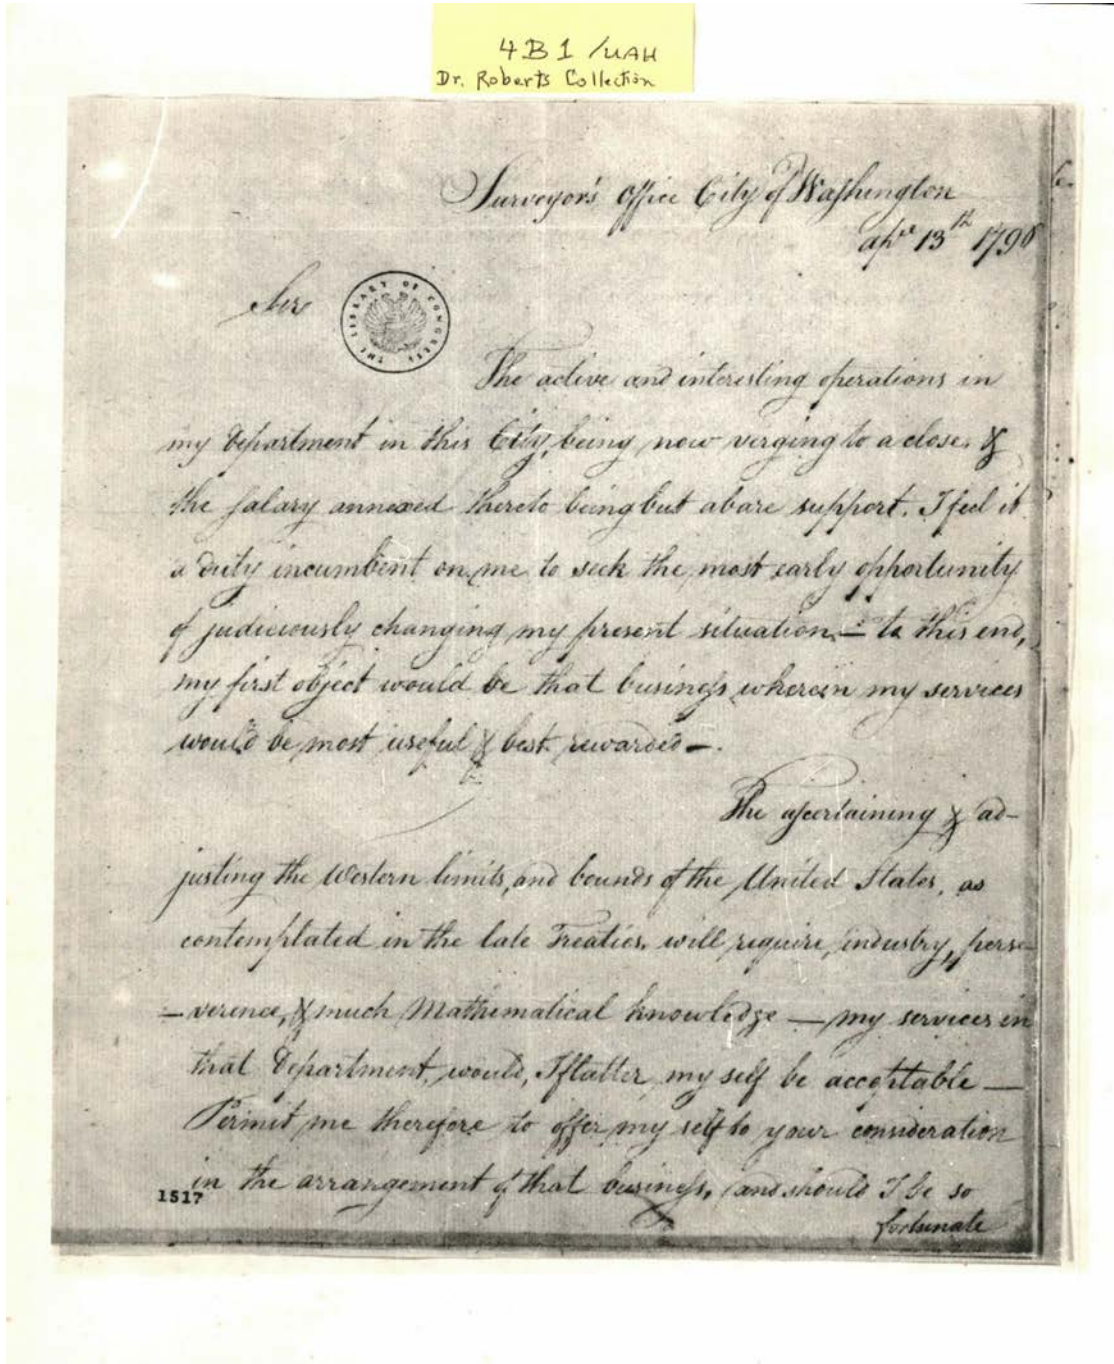 4B1/UAH
Dr. Roberts Collection
Surveyor's Office City of Washington
apl 13th 179
Sir
THE LIBRARY OF CONGRESS
The active and interesting operations in
my Department in this City, being now verging to a close, &
the salary annexed thereto being but a bare support. I feel it
a duty incumbent on me to seek the most early opportunity
of judiciously changing my present situation. – to this end,
my first object would be that business wherein my services
would be most useful & best rewarded –.
The ascertaining & ad-
justing the Western limits, and bounds of the United States, as
contemplated in the late Treaties, will require, industry, perse-
-verence, & much Mathematical knowledge — my services in
that Department, would, I flatter my self be acceptable —
Permit me therefore to offer my self to your consideration
in the arrangement of that business, and should I be so
1517
fortunate